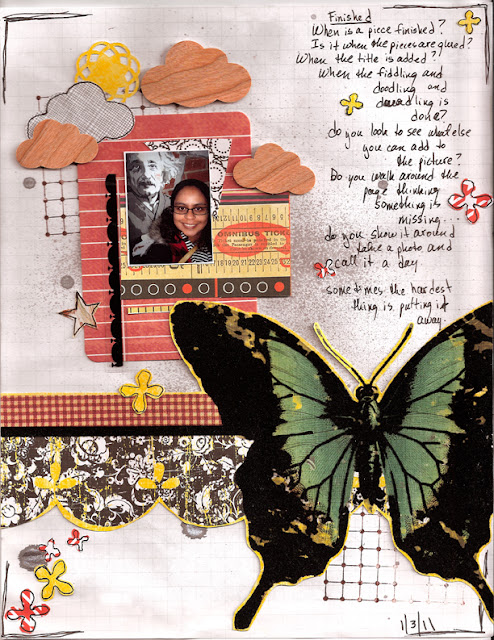 Finished
When is a piece finished?
Is it when the pieces are glued?
When the title is added?
When the fiddling and
doodling and
dawdling is
done?
do you look to see what else
you can add to
the picture?
Do you walk around the
page thinking
something is
missing...
do you show it around
take a photo and
call it a day
sometimes the hardest
thing is putting it
away.
OMNIBUS TICK
1/3/11